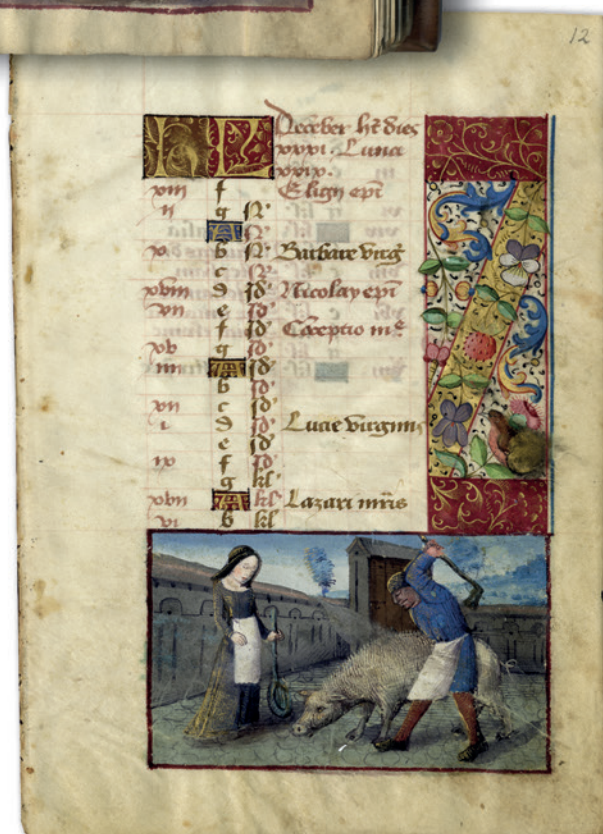 12
KL
December hr̄ dies
xxxi. Luna
xxix.
xiii f Eligii epī
ii g N̄
A
x b N̄ Barbare virḡ
c
xviii d Id' Nicolay epī
vii e Id'
f Id' Cōceptio m̄e
xv g Id'
iiii A Id'
b Id'
xii c Id'
i d Id' Lucie virginis
e Id'
ix f Id'
g kl'
xvii A kl' Lazari mr̄is
vi b kl'